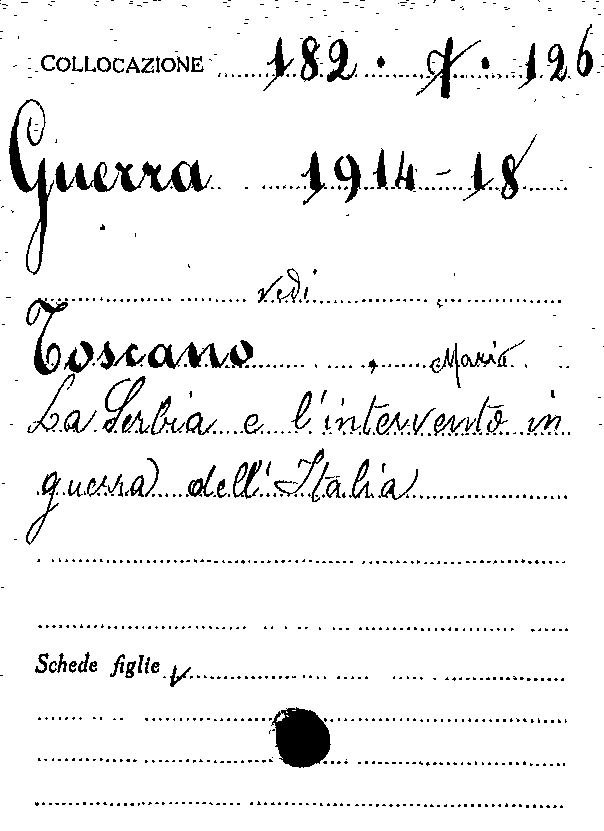 COLLOCAZIONE 182 · 7 · 126
Guerra 1914-18
vedi
Toscano , Mario
La Serbia e l'intervento in
guerra dell'Italia
Schede figlie v